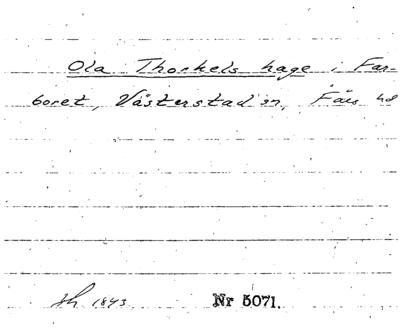 Ola Thorkels hage i Far-
boret, Västerstad sn, Färs hd
1843 Nr 5071.